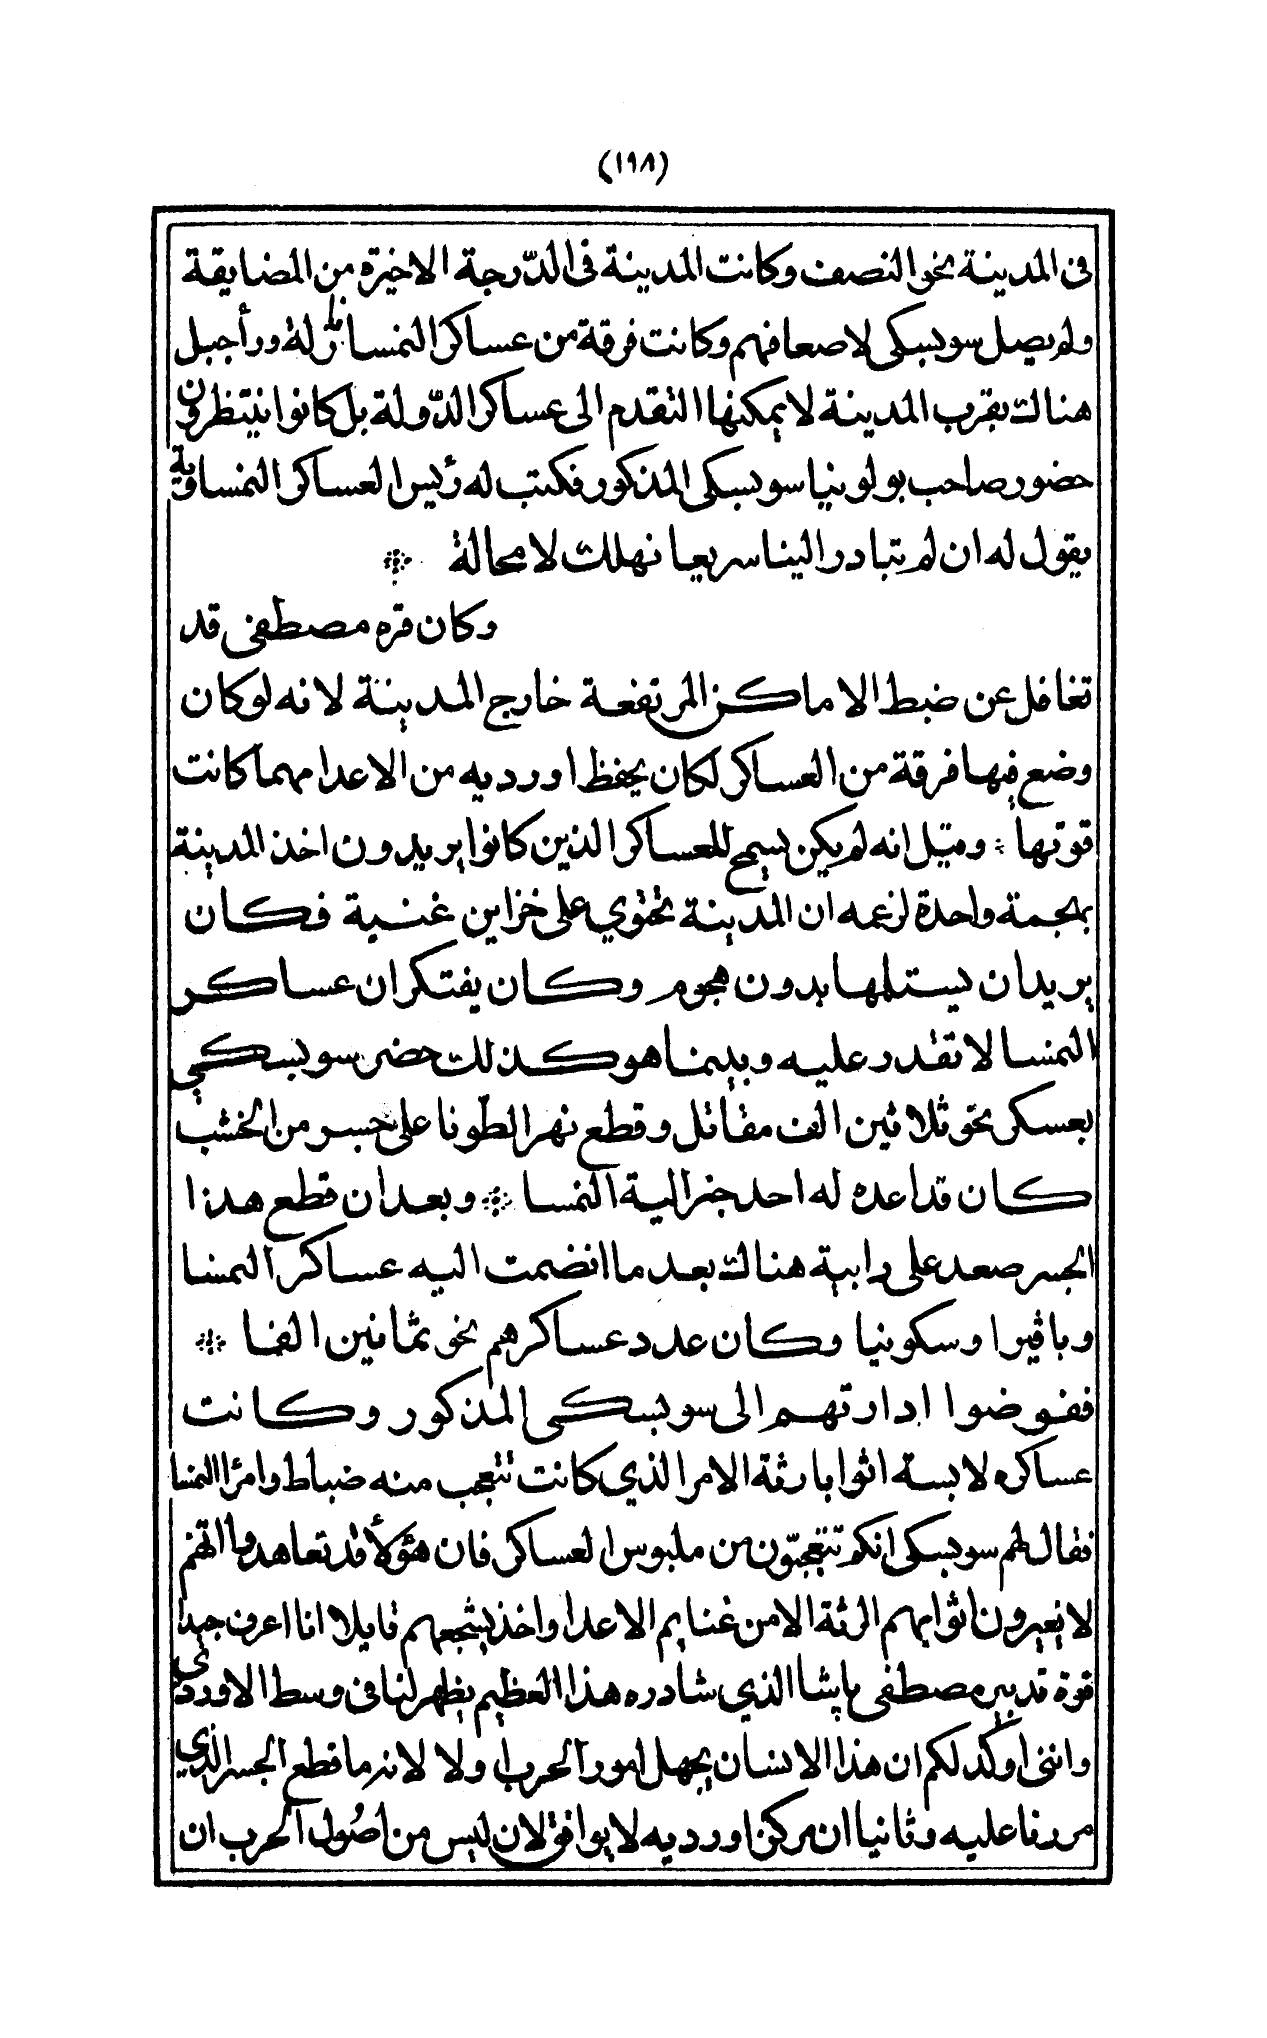 (١٩٨)
فى المدينة نحو النصف وكانت المدينة فى الدّرجة الاخيرة من المضايقة
ولم يصل سوبسكى لاصعافهم وكانت فرقة من عساكر النمسا نازلة ورأ جبل
هناك بقرب المدينة لا يمكنها التقدم الى عساكر الدّولة بل كانوا ينتظرون
حضور صاحب بولونيا سوبسكى المذكور فكتب له رئيس العساكر النمساوية
يقول له ان لم تبادر الينا سريعا نهلك لا محالة ❊
وكان قره مصطفى قد
تغافل عن ضبط الاماكن المرتفعة خارج المدينة لانه لو كان
وضع فيها فرقة من العساكر لكان يحفظ اورديه من الاعدا مهما كانت
قوتها ❊ وقيل انه لم يكن يسمح للعساكر الذين كانوا يريدون اخذ المدينة
بهجمة واحدة لزعمه ان المدينة تحتوي على خزاين غنية فكان
يريد ان يستلمها بدون هجوم وكان يفتكر ان عساكر
النمسا لا تقدر عليه وبينما هو كذلك حضر سوبسكي
بعسكر نحو ثلاثين الف مقاتل وقطع نهر الطونا على جسر من الخشب
كان قد اعده له احد جنرالية النمسا ❊ وبعد ان قطع هذا
الجسر صعد على رابية هناك بعد ما انضمت اليه عساكر النمسا
وباڤيرا وسكونيا وكان عدد عساكرهم نحو ثمانين الفا ❊
ففوضوا ادارتهم الى سوبسكى المذكور وكانت
عساكره لابسة اثوابا رثة الامر الذي كانت تتعجب منه ضباط وامرا النمسا
فقال لهم سوبسكى انكم تتعجبّون من ملبوس العساكر فان هؤلأ قد تعاهدوا انهم
لا يغيرون اثوابهم الرثة الا من غنايم الاعدا واخذ يشجعهم قايلا انا اعرف جيدا
قوة تدبير مصطفى باشا الذي شادره هذا العظيم يظهر لنا فى وسط الاوردي
واننى اوكد لكم ان هذا الانسان يجهل امور الحرب اولا لانه ما قطع الجسر الذي
مررنا عليه وثانيا ان مركز اورديه لا يوافق لان ليس من اصُول الحرب ان